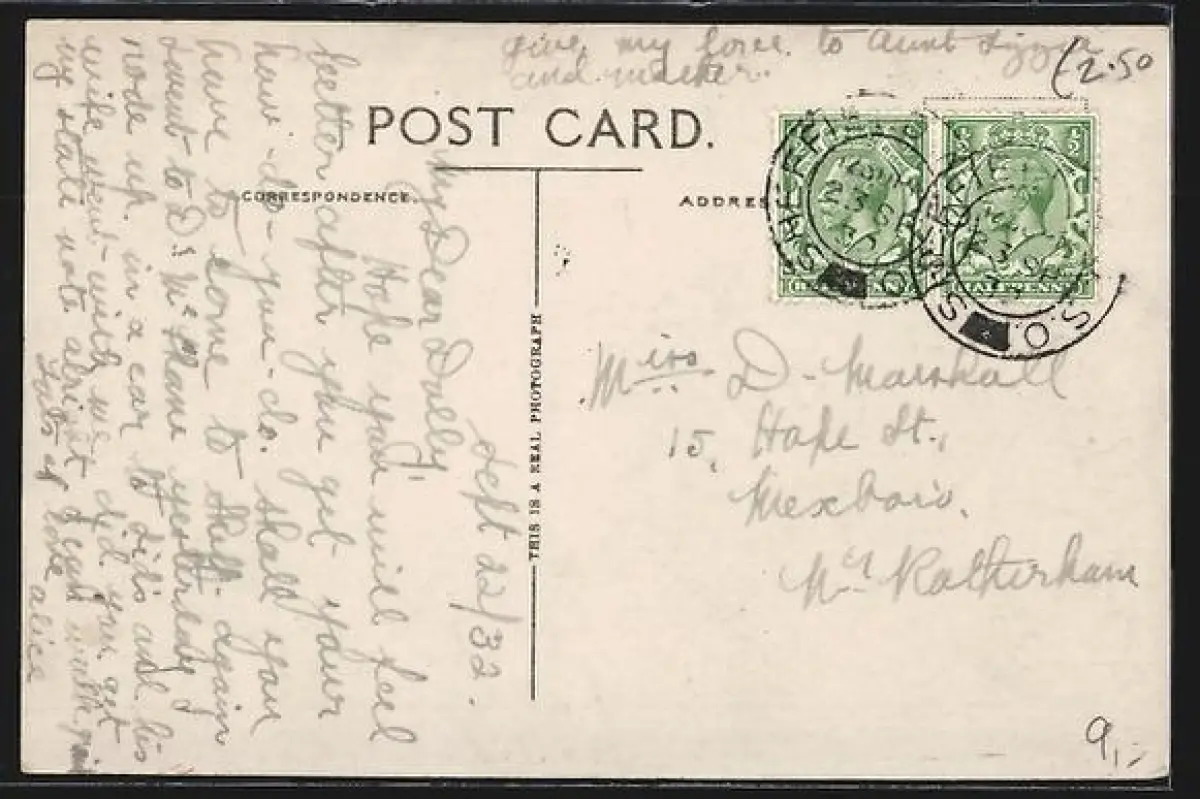 give my love to Aunt Lizzie
and mother.
£2.50
POST CARD.
CORRESPONDENCE.
ADDRES
SHEFFIELD
S.O.
HALFPENNY
THIS IS A REAL PHOTOGRAPH
Sept 22/32.
My Dear Dolly,
Hope you will feel
better after you get your
how-do-you-do. shall you
have to come to Sheff- again
I went to Dr Mc Shane yesterday I
rode up in a car to Sids and his
wife went with me did you get
my state note alright
Lots of love
Alice
Miss D. Marshall
15, Hope St.,
Mexboro.
Nr Rotherham
9,-